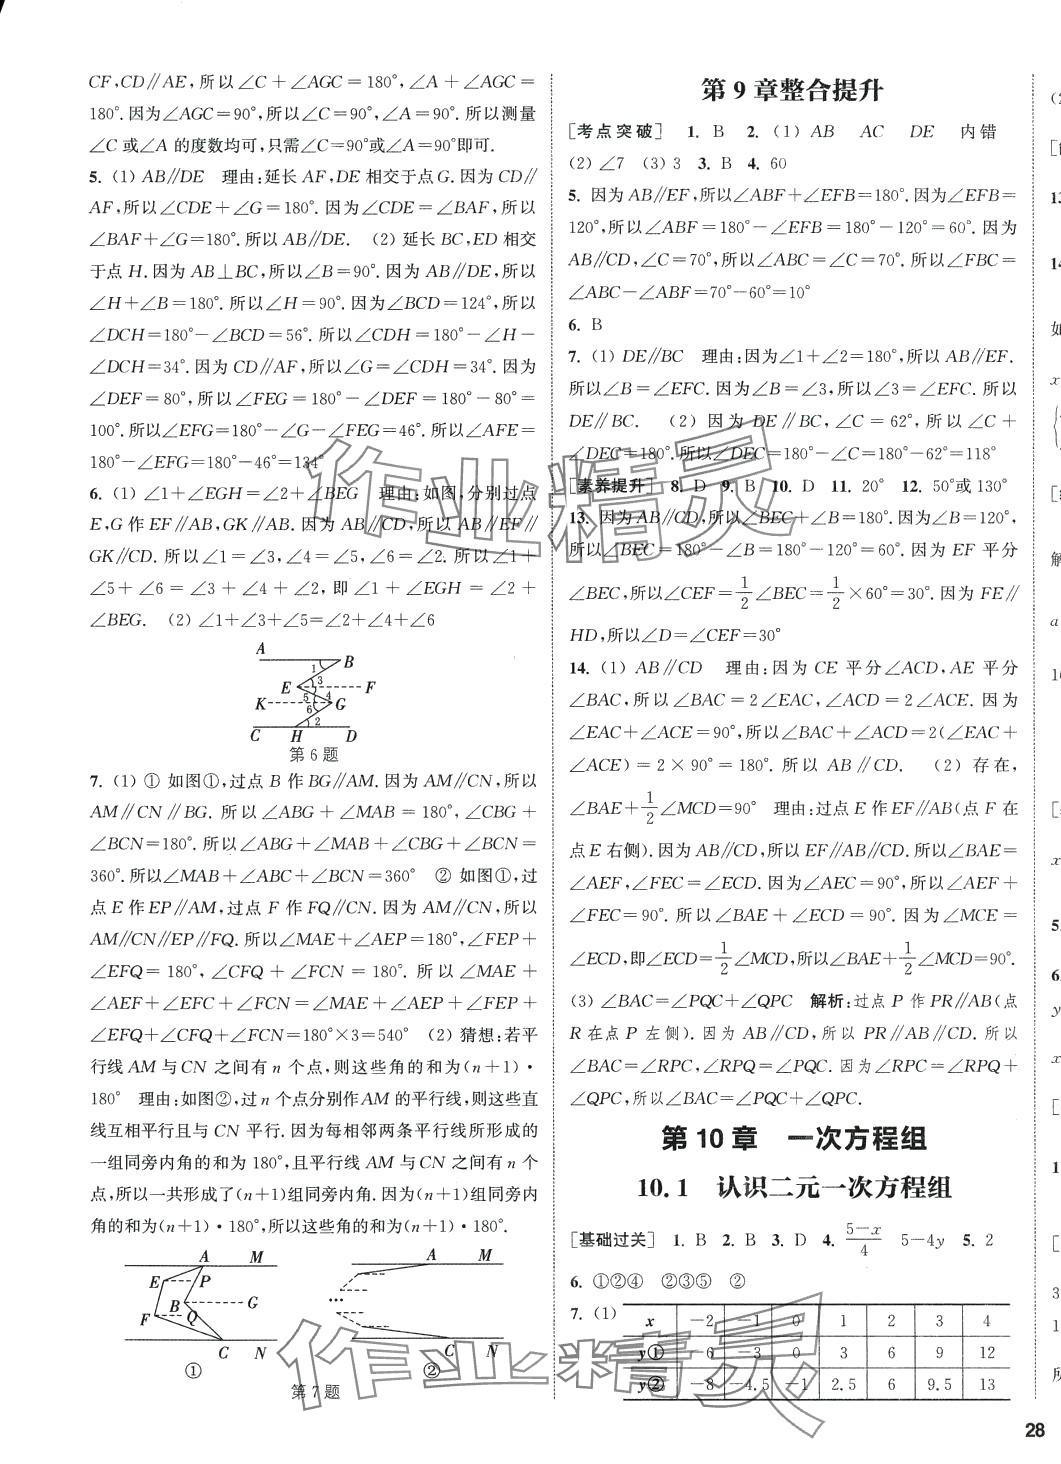 CF,CD∥AE,所以∠C+∠AGC=180°,∠A+∠AGC=
180°.因为∠AGC=90°,所以∠C=90°,∠A=90°.所以测量
∠C或∠A的度数均可,只需∠C=90°或∠A=90°即可.
5. (1) AB∥DE 理由:延长AF,DE相交于点G.因为CD∥
AF,所以∠CDE+∠G=180°.因为∠CDE=∠BAF,所以
∠BAF+∠G=180°.所以AB∥DE. (2) 延长BC,ED相交
于点H.因为AB⊥BC,所以∠B=90°.因为AB∥DE,所以
∠H+∠B=180°.所以∠H=90°.因为∠BCD=124°,所以
∠DCH=180°-∠BCD=56°.所以∠CDH=180°-∠H-
∠DCH=34°.因为CD∥AF,所以∠G=∠CDH=34°.因为
∠DEF=80°,所以∠FEG=180°-∠DEF=180°-80°=
100°.所以∠EFG=180°-∠G-∠FEG=46°.所以∠AFE=
180°-∠EFG=180°-46°=134°
6. (1) ∠1+∠EGH=∠2+∠BEG 理由:如图,分别过点
E,G作EF∥AB,GK∥AB.因为AB∥CD,所以AB∥EF∥
GK∥CD.所以∠1=∠3,∠4=∠5,∠6=∠2.所以∠1+
∠5+∠6=∠3+∠4+∠2,即∠1+∠EGH=∠2+
∠BEG. (2) ∠1+∠3+∠5=∠2+∠4+∠6
A
1 B
E 3 F
5 4
K 6 G
2
C H D
第6题
7. (1) ① 如图①,过点B作BG∥AM.因为AM∥CN,所以
AM∥CN∥BG.所以∠ABG+∠MAB=180°,∠CBG+
∠BCN=180°.所以∠ABG+∠MAB+∠CBG+∠BCN=
360°.所以∠MAB+∠ABC+∠BCN=360° ② 如图①,过
点E作EP∥AM,过点F作FQ∥CN.因为AM∥CN,所以
AM∥CN∥EP∥FQ.所以∠MAE+∠AEP=180°,∠FEP+
∠EFQ=180°,∠CFQ+∠FCN=180°.所以∠MAE+
∠AEF+∠EFC+∠FCN=∠MAE+∠AEP+∠FEP+
∠EFQ+∠CFQ+∠FCN=180°×3=540° (2) 猜想:若平
行线AM与CN之间有n个点,则这些角的和为(n+1)·
180° 理由:如图②,过n个点分别作AM的平行线,则这些直
线互相平行且与CN平行.因为每相邻两条平行线所形成的
一组同旁内角的和为180°,且平行线AM与CN之间有n个
点,所以一共形成了(n+1)组同旁内角.因为(n+1)组同旁内
角的和为(n+1)·180°,所以这些角的和为(n+1)·180°.
A M
E P
B G
F Q
C N
①
A M
…
C N
②
第7题
第9章整合提升
[考点突破] 1. B 2. (1) AB AC DE 内错
(2) ∠7 (3) 3 3. B 4. 60
5. 因为AB∥EF,所以∠ABF+∠EFB=180°.因为∠EFB=
120°,所以∠ABF=180°-∠EFB=180°-120°=60°.因为
AB∥CD,∠C=70°,所以∠ABC=∠C=70°.所以∠FBC=
∠ABC-∠ABF=70°-60°=10°
6. B
7. (1) DE∥BC 理由:因为∠1+∠2=180°,所以AB∥EF.
所以∠B=∠EFC.因为∠B=∠3,所以∠3=∠EFC.所以
DE∥BC. (2) 因为DE∥BC,∠C=62°,所以∠C+
∠DEC=180°.所以∠DEC=180°-∠C=180°-62°=118°
[素养提升] 8. D 9. B 10. D 11. 20° 12. 50°或130°
13. 因为AB∥CD,所以∠BEC+∠B=180°.因为∠B=120°,
所以∠BEC=180°-∠B=180°-120°=60°.因为EF平分
∠BEC,所以∠CEF=1/2∠BEC=1/2×60°=30°.因为FE∥
HD,所以∠D=∠CEF=30°
14. (1) AB∥CD 理由:因为CE平分∠ACD,AE平分
∠BAC,所以∠BAC=2∠EAC,∠ACD=2∠ACE.因为
∠EAC+∠ACE=90°,所以∠BAC+∠ACD=2(∠EAC+
∠ACE)=2×90°=180°.所以AB∥CD. (2) 存在,
∠BAE+1/2∠MCD=90° 理由:过点E作EF∥AB(点F在
点E右侧).因为AB∥CD,所以EF∥AB∥CD.所以∠BAE=
∠AEF,∠FEC=∠ECD.因为∠AEC=90°,所以∠AEF+
∠FEC=90°.所以∠BAE+∠ECD=90°.因为∠MCE=
∠ECD,即∠ECD=1/2∠MCD,所以∠BAE+1/2∠MCD=90°.
(3) ∠BAC=∠PQC+∠QPC 解析:过点P作PR∥AB(点
R在点P左侧).因为AB∥CD,所以PR∥AB∥CD.所以
∠BAC=∠RPC,∠RPQ=∠PQC.因为∠RPC=∠RPQ+
∠QPC,所以∠BAC=∠PQC+∠QPC.
第10章 一次方程组
10.1 认识二元一次方程组
[基础过关] 1. B 2. B 3. D 4. (5-x)/4 5-4y 5. 2
6. ①②④ ②③⑤ ②
7. (1)
x -2 -1 0 1 2 3 4
y① -6 -3 0 3 6 9 12
y② -8 -4.5 -1 2.5 6 9.5 13
28
作业精灵
作业精灵